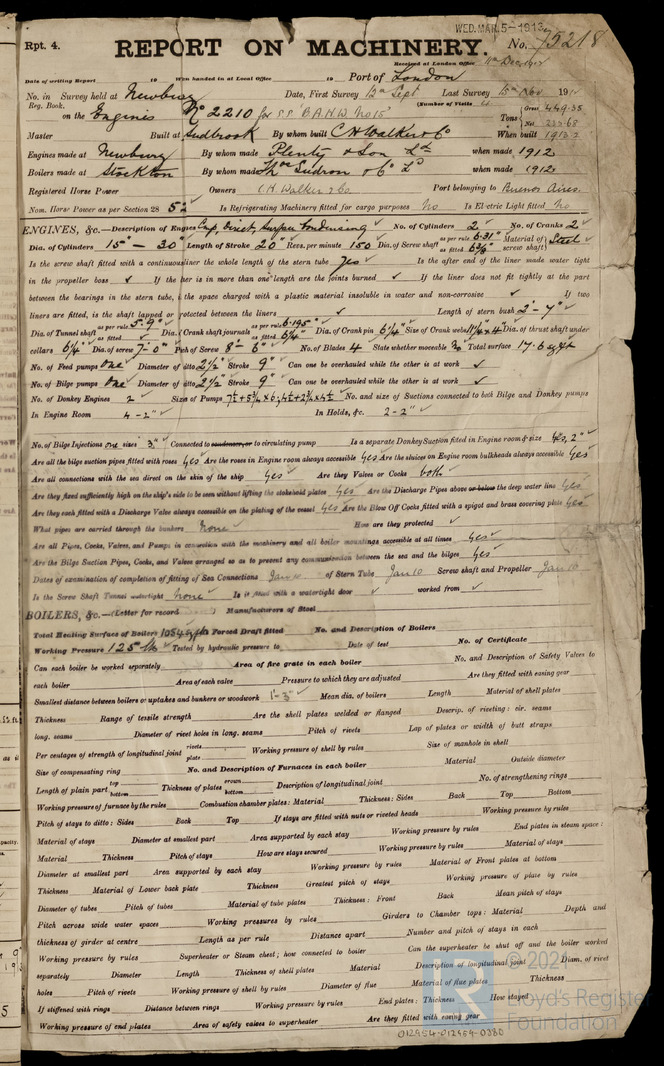 WED.MAR.5-1913
Rpt. 4. REPORT ON MACHINERY. No. 75218
Received at London Office 11th Dec 1912
Date of writing Report 19 When handed in at Local Office 19 Port of London
No. in Survey held at Newbury Date, First Survey 12th Sept Last Survey 15th Nov 191
Reg. Book. (Number of Visits
on the Engines No 2210 for S.S. "B.A.H.W. No 15" Tons Gross 449.35 Net 222.68
Master Built at Sudbrook By whom built C H Walker & Co When built 1913-2
Engines made at Newbury By whom made Plenty & Son Ld when made 1912
Boilers made at Stockton By whom made Thos Sudron & Co Ld when made 1912
Registered Horse Power Owners C.H. Walker & Co. Port belonging to Buenos Aires.
Nom. Horse Power as per Section 28 52 Is Refrigerating Machinery fitted for cargo purposes No Is Electric Light fitted No
ENGINES, &c.—Description of Engines Cup, Direct, Surface Condensing No. of Cylinders 2 No. of Cranks 2
Dia. of Cylinders 15" - 30" Length of Stroke 20" Revs. per minute 150 Dia. of Screw shaft as per rule 6.31" as fitted 6 3/8" Material of screw shaft Steel
Is the screw shaft fitted with a continuous liner the whole length of the stern tube Yes Is the after end of the liner made water tight
in the propeller boss ✓ If the liner is in more than one length are the joints burned ✓ If the liner does not fit tightly at the part
between the bearings in the stern tube, is the space charged with a plastic material insoluble in water and non-corrosive ✓ If two
liners are fitted, is the shaft lapped or protected between the liners ✓ Length of stern bush 2'-7"
Dia. of Tunnel shaft as per rule 5.9" as fitted ✓ Dia. of Crank shaft journals as per rule 6.195" as fitted 6 1/4" Dia. of Crank pin 6 1/4" Size of Crank webs 11 1/4 x 4 Dia. of thrust shaft under
collars 6 1/4" Dia. of screw 7'-0" Pitch of Screw 8'-6" No. of Blades 4 State whether moveable No Total surface 17.6 sq ft
No. of Feed pumps One Diameter of ditto 2 1/2" Stroke 9" Can one be overhauled while the other is at work ✓
No. of Bilge pumps One Diameter of ditto 2 1/2" Stroke 9" Can one be overhauled while the other is at work ✓
No. of Donkey Engines 2 Sizes of Pumps 7 1/2 + 5 3/4 x 6, 4 1/2 + 2 3/4 x 4 1/2 No. and size of Suctions connected to both Bilge and Donkey pumps
In Engine Room 4 - 2" In Holds, &c. 2 - 2"
No. of Bilge Injections one sizes 3" Connected to condenser, or to circulating pump Is a separate Donkey Suction fitted in Engine room & size Yes, 2"
Are all the bilge suction pipes fitted with roses Yes Are the roses in Engine room always accessible Yes Are the sluices on Engine room bulkheads always accessible Yes
Are all connections with the sea direct on the skin of the ship Yes Are they Valves or Cocks both
Are they fixed sufficiently high on the ship's side to be seen without lifting the stokehold plates Yes Are the Discharge Pipes above or below the deep water line Yes
Are they each fitted with a Discharge Valve always accessible on the plating of the vessel Yes Are the Blow Off Cocks fitted with a spigot and brass covering plate Yes
What pipes are carried through the bunkers None How are they protected ✓
Are all Pipes, Cocks, Valves, and Pumps in connection with the machinery and all boiler mountings accessible at all times Yes
Are the Bilge Suction Pipes, Cocks, and Valves arranged so as to prevent any communication between the sea and the bilges Yes
Dates of examination of completion of fitting of Sea Connections Jan 10 of Stern Tube Jan 10 Screw shaft and Propeller Jan 10
Is the Screw Shaft Tunnel watertight None Is it fitted with a watertight door ✓ worked from ✓
BOILERS, &c.—(Letter for record ) Manufacturers of Steel
Total Heating Surface of Boilers 1054 sq ft Forced Draft fitted No. and Description of Boilers
Working Pressure 125 lb Tested by hydraulic pressure to Date of test No. of Certificate
Can each boiler be worked separately Area of fire grate in each boiler No. and Description of Safety Valves to
each boiler Area of each valve Pressure to which they are adjusted Are they fitted with easing gear
Smallest distance between boilers or uptakes and bunkers or woodwork 1'-3" Mean dia. of boilers Length Material of shell plates
Thickness Range of tensile strength Are the shell plates welded or flanged Descrip. of riveting: cir. seams
long. seams Diameter of rivet holes in long. seams Pitch of rivets Lap of plates or width of butt straps
Per centages of strength of longitudinal joint rivets plate Working pressure of shell by rules Size of manhole in shell
Size of compensating ring No. and Description of Furnaces in each boiler Material Outside diameter
Length of plain part top bottom Thickness of plates crown bottom Description of longitudinal joint No. of strengthening rings
Working pressure of furnace by the rules Combustion chamber plates: Material Thickness: Sides Back Top Bottom
Pitch of stays to ditto: Sides Back Top If stays are fitted with nuts or riveted heads Working pressure by rules
Material of stays Diameter at smallest part Area supported by each stay Working pressure by rules End plates in steam space:
Material Thickness Pitch of stays How are stays secured Working pressure by rules Material of stays
Diameter at smallest part Area supported by each stay Working pressure by rules Material of Front plates at bottom
Thickness Material of Lower back plate Thickness Greatest pitch of stays Working pressure of plate by rules
Diameter of tubes Pitch of tubes Material of tube plates Thickness: Front Back Mean pitch of stays
Pitch across wide water spaces Working pressures by rules Girders to Chamber tops: Material Depth and
thickness of girder at centre Length as per rule Distance apart Number and pitch of stays in each
Working pressure by rules Superheater or Steam chest; how connected to boiler Can the superheater be shut off and the boiler worked
separately Diameter Length Thickness of shell plates Material Description of longitudinal joint Diam. of rivet
holes Pitch of rivets Working pressure of shell by rules Diameter of flue Material of flue plates Thickness
If stiffened with rings Distance between rings Working pressure by rules End plates: Thickness How stayed
Working pressure of end plates Area of safety valves to superheater Are they fitted with easing gear
© 2021
Lloyd's Register
Foundation
012954-012959-0380